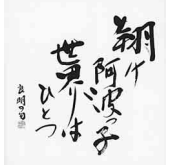 翔け
阿波っ子
世界は
ひとつ
良明の句